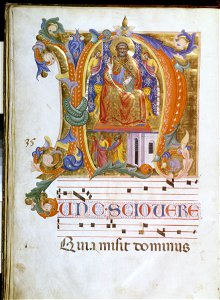 35
N
UNC·SCIOVERE
Quia misit dominus